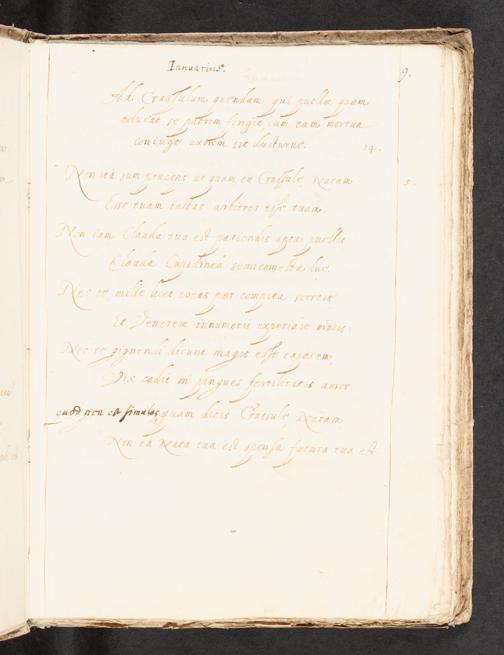 Ianuarius.
9.
Ad Crassulum quendam qui puellæ quam
educat se patrem fingit, cum eam mortua
coniuge uxorem sit ducturus.
14.
Non ità sum preceps ut quam tu Crassule Natam
5.
Esse tuam iactas arbitrer esse tuam.
Non iam Clauda tua est patiendis apta puellis
Clauda Cupidinea semicomesta lue.
Nec te mille licet coeas per compita scortis
Et Venerem innumeris experiare modis
Nec te gignendi dicunt magis esse capacem,
Vix cadit in pingues fertilitatis amor
quòd non est simulas, quam dicis Crassule Natam
Non ea Nata tua est sponsa futura tua est